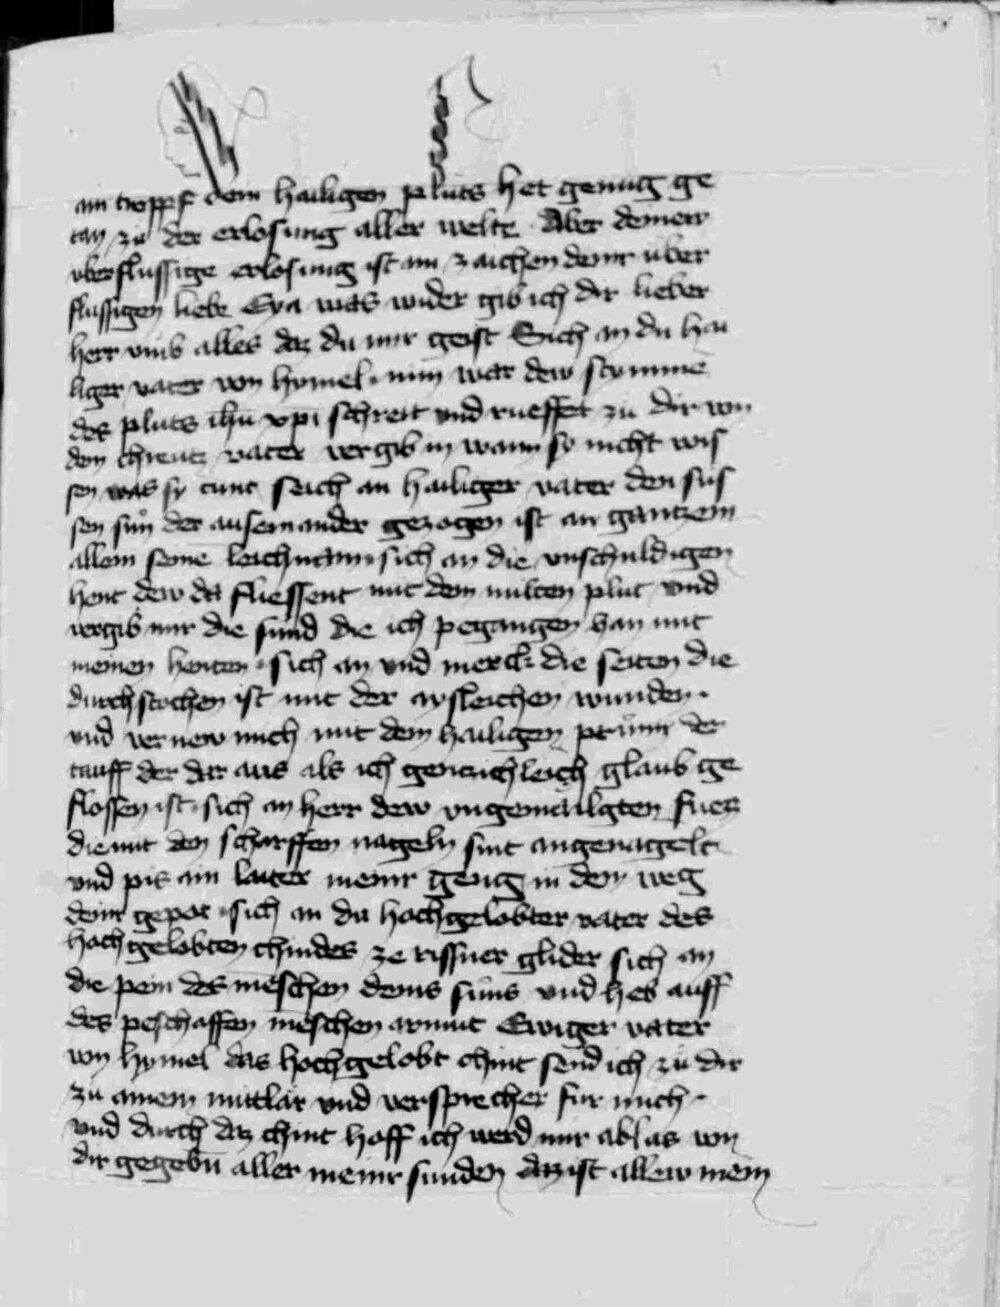 ain tropff dein hailigen pluts het genug ge
tan zu der erlosung aller welte Aber deinew
vberflussige erlosung ist ain zaichen deinr uber
flussigen liebe Eya was wider gib ich dir lieber
herr vmb alles daz du mir geist Sich an du hai
liger vater von hymel · nim war dew stymme
des pluts ihu xpi schreit und rueffet zu dir von
dem chreutz vater vergib in wann sy nicht wis
sen was sy tunt seich an hailiger vater den sus
sen sun der auseinander gezogen ist an gantzem
allem seinē leichnam · sich an die vnschuldigen
hent dew da fliessent mit dem milten plut und
vergib mir die sund die ich pegangen han mit
meinen henten · sich an und merck die seiten die
durchstochen ist mit der aysleichen wunden ·
und vernew mich mit dem hailigen prunn der
tauff der dar aus als ich gentzichleich glaub ge
flossen ist · sich an herr dew vngemailgten fuezz
die mit den scharffen nageln sint angenagelt
und pis ain laiter meinr geng in dem weg
deinr gepot · sich an du hochgelobter vater des
hochgelobten chindes zerissner glider sich an
die pein des mēschen deins suns und heb auff
des peschaffen mēschen armut Ewiger vater
von hymel das hochgelobt chint send ich zu dir
zu ainem mittlar und versprecher fur mich ·
und durch daz chint hoff ich werd mir ablas von
dir gegebn̄ aller meinr sunden daz ist allew mein